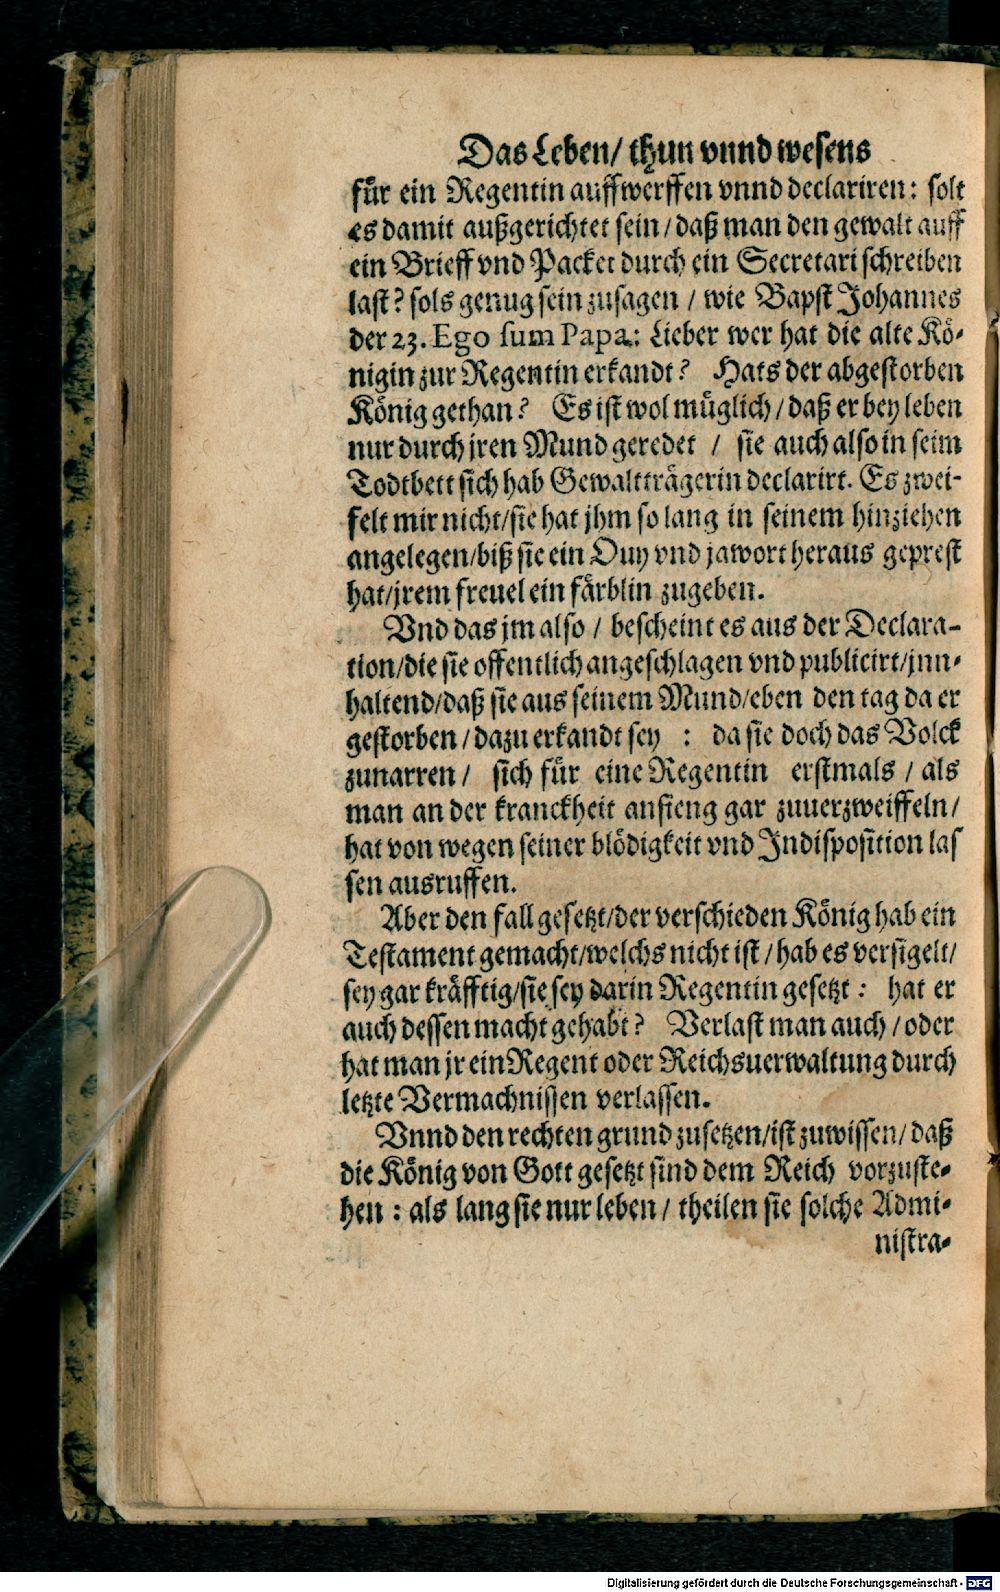 Das Leben/ thun vnnd wesens
für ein Regentin auffwerffen vnnd declariren: solt
es damit außgerichtet sein/daß man den gewalt auff
ein Brieff vnd Packet durch ein Secretari schreiben
last? sols genug sein zusagen / wie Bapst Johannes
der 23. Ego sum Papa: Lieber wer hat die alte Kö-
nigin zur Regentin erkandt? Hats der abgestorben
König gethan? Es ist wol müglich/daß er bey leben
nur durch jren Mund geredet / sie auch also in seim
Todtbett sich hab Gewaltträgerin declarirt. Es zwei-
felt mir nicht/sie hat jhm so lang in seinem hinziehen
angelegen/biß sie ein Ouy vnd jawort heraus geprest
hat/jrem freuel ein färblin zugeben.
Vnd das jm also / bescheint es aus der Declara-
tion/die sie offentlich angeschlagen vnd publicirt/jnn-
haltend/daß sie aus seinem Mund/eben den tag da er
gestorben/dazu erkandt sey : da sie doch das Volck
zunarren/ sich für eine Regentin erstmals / als
man an der kranckheit anfieng gar zuuerzweiffeln/
hat von wegen seiner blödigkeit vnd Indisposition las
sen ausruffen.
Aber den fall gesetzt/der verschieden König hab ein
Testament gemacht/welchs nicht ist/hab es versigelt/
sey gar kräfftig/sie sey darin Regentin gesetzt: hat er
auch dessen macht gehabt? Verlast man auch/oder
hat man jr ein Regent oder Reichsuerwaltung durch
letzte Vermachnissen verlassen.
Vnnd den rechten grund zusetzen/ist zuwissen/daß
die König von Gott gesetzt sind dem Reich vorzuste-
hen: als lang sie nur leben/ theilen sie solche Admi-
nistra-
Digitalisierung gefördert durch die Deutsche Forschungsgemeinschaft - DFG